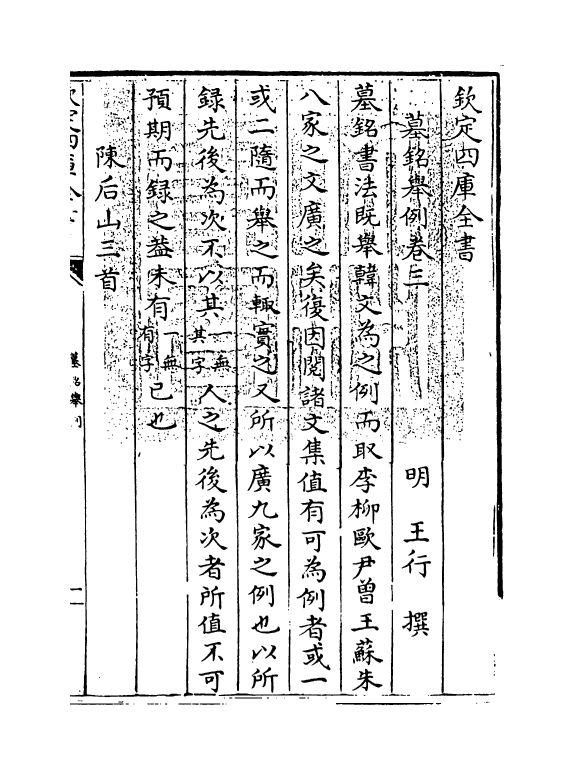 欽定四庫全書
墓銘舉例卷三
明 王行 撰
墓銘書法既舉韓文為之例而取李柳歐尹曾王蘇朱
八家之文廣之矣復因閲諸文集值有可為例者或一
或二隨而舉之而輒實之又所以廣九家之例也以所
録先後為次不以其一無其字人之先後為次者所值不可
預期而録之葢未有一無有字已也
陳后山三首
墓銘舉例